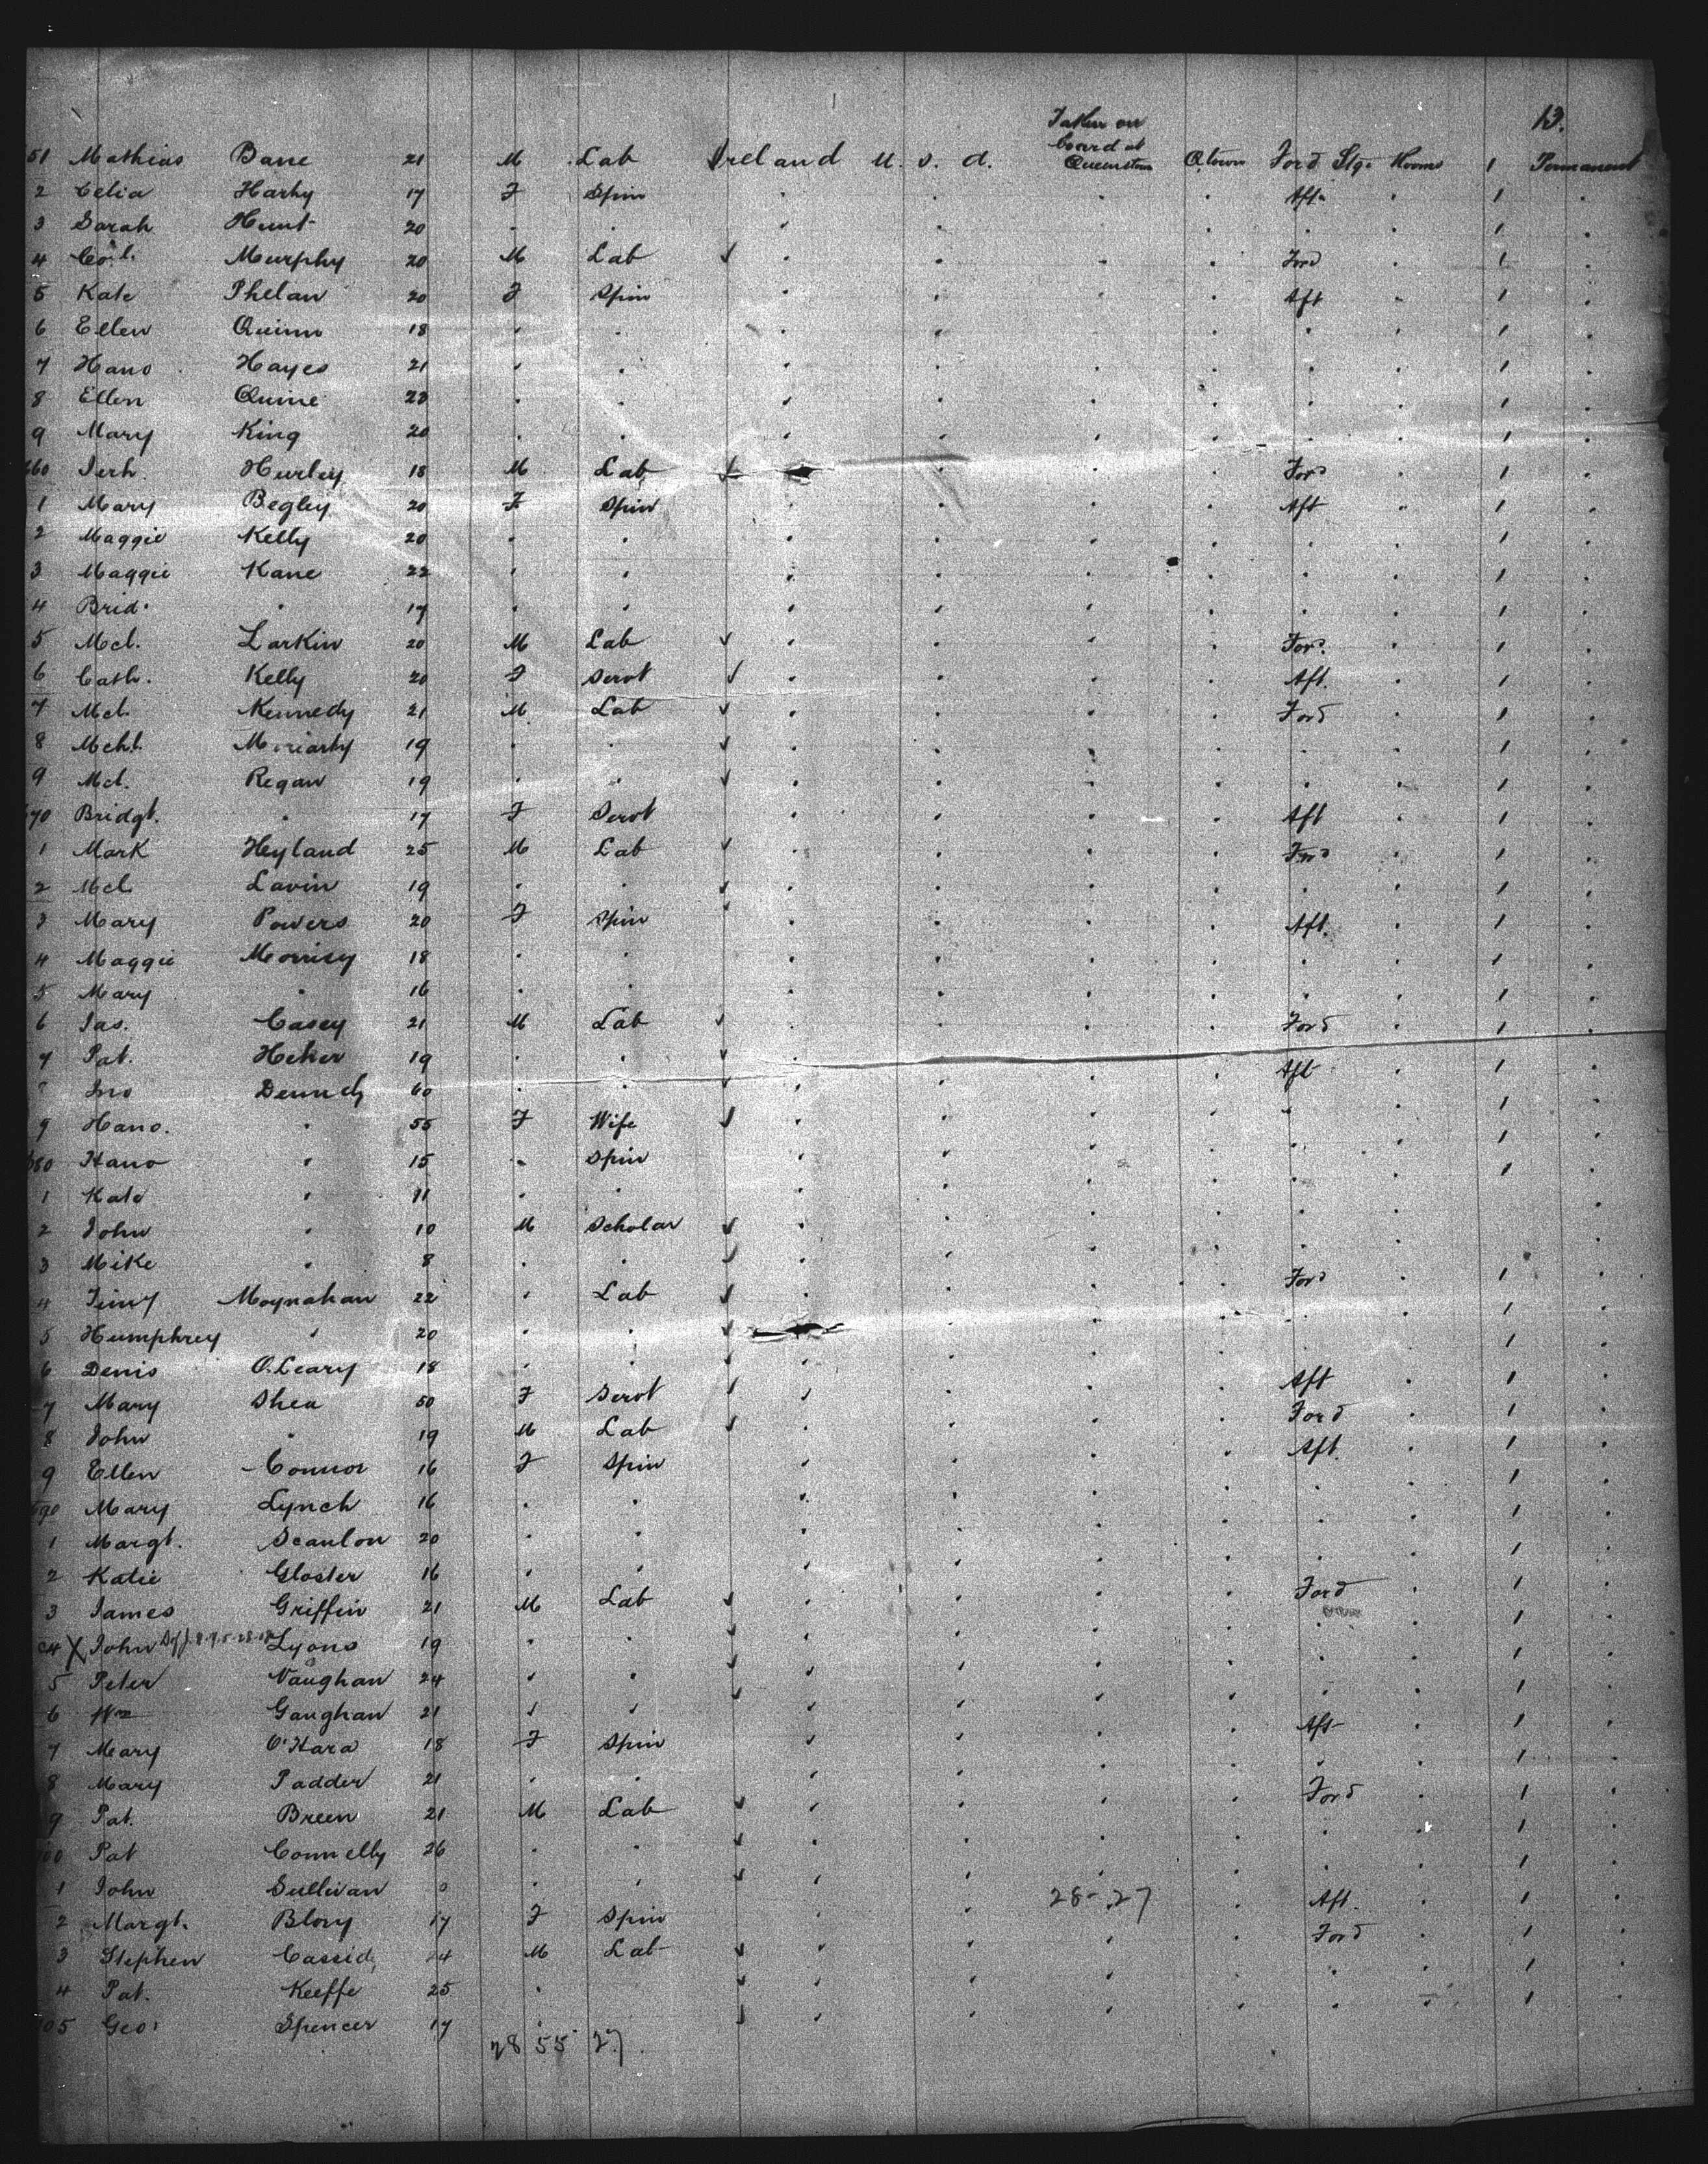 13.
Taken on
board at
51 Mathias Bane 21 M Lab Ireland U. S. A. Queenstown Qtown Ford Stg. Rooms 1 Permanent
2 Celia Harty 17 F Spin Aft 1
3 Sarah Hunt 20 1
4 Murphy 20 M Lab Ford 1
5 Kate Phelan 20 F Spin Aft 1
6 Ellen Quinn 18 1
7 Hano Hayes 21 1
8 Ellen Quine 1
9 Mary King 20 1
660 Jerh. Hurley 18 M Lab Ford 1
1 Mary Begley 20 F Spin Aft 1
2 Maggie Kelly 20 1
3 Maggie Kane 22 1
4 Brid. 17 1
5 Mcl. Larkin 20 M Lab Ford 1
6 Cath. Kelly 20 F Servt Aft. 1
7 Mcl. Kennedy 21 M Lab Ford 1
8 Mchl. Moriarty 19 1
9 Mcl. Regan 19 1
670 Bridgt. 17 F Servt Aft 1
1 Mark Heyland 25 M Lab Ford 1
2 Mcl. Lavin 19 1
3 Mary Powers 20 F Spin Aft. 1
4 Maggie Morrisy 18 1
5 Mary 16 1
6 Jas. Casey 21 M Lab Ford 1
7 Pat. 19 Aft 1
Jno 60 1
9 Hano. 55 F Wife 1
680 Hano 15 Spin 1
1 Kate 11
2 John 10 M Scholar
3 Mike 8
4 Moynahan 22 Lab Ford 1
5 Humphrey 20
6 Denis O.Leary 18 1
7 Mary Shea 50 F Servt Aft 1
8 John 19 M Lab Ford 1
9 Ellen Connor 16 F Spin Aft. 1
690 Mary Lynch 16 1
1 Margt. Scanlon 20 1
2 Katie Gloster 16 1
3 James Griffin 21 M Lab Ford 1
94 X John Lyons 19 1
5 Peter Vaughan 24
6 Wm Gaughan 21 1
7 Mary O'Hara 18 F Spin Aft 1
8 Mary Padder 21 1
9 Pat. Breen 21 M Lab Ford 1
700 Pat Connelly 26 1
1 John Sullivan 1
28-27
2 Margt. Blory 17 F Spin Aft. 1
3 Stephen Cassid M Lab Ford 1
4 Pat. Keeffe 25 1
705 Geo. Spencer 17 1
28 55 27